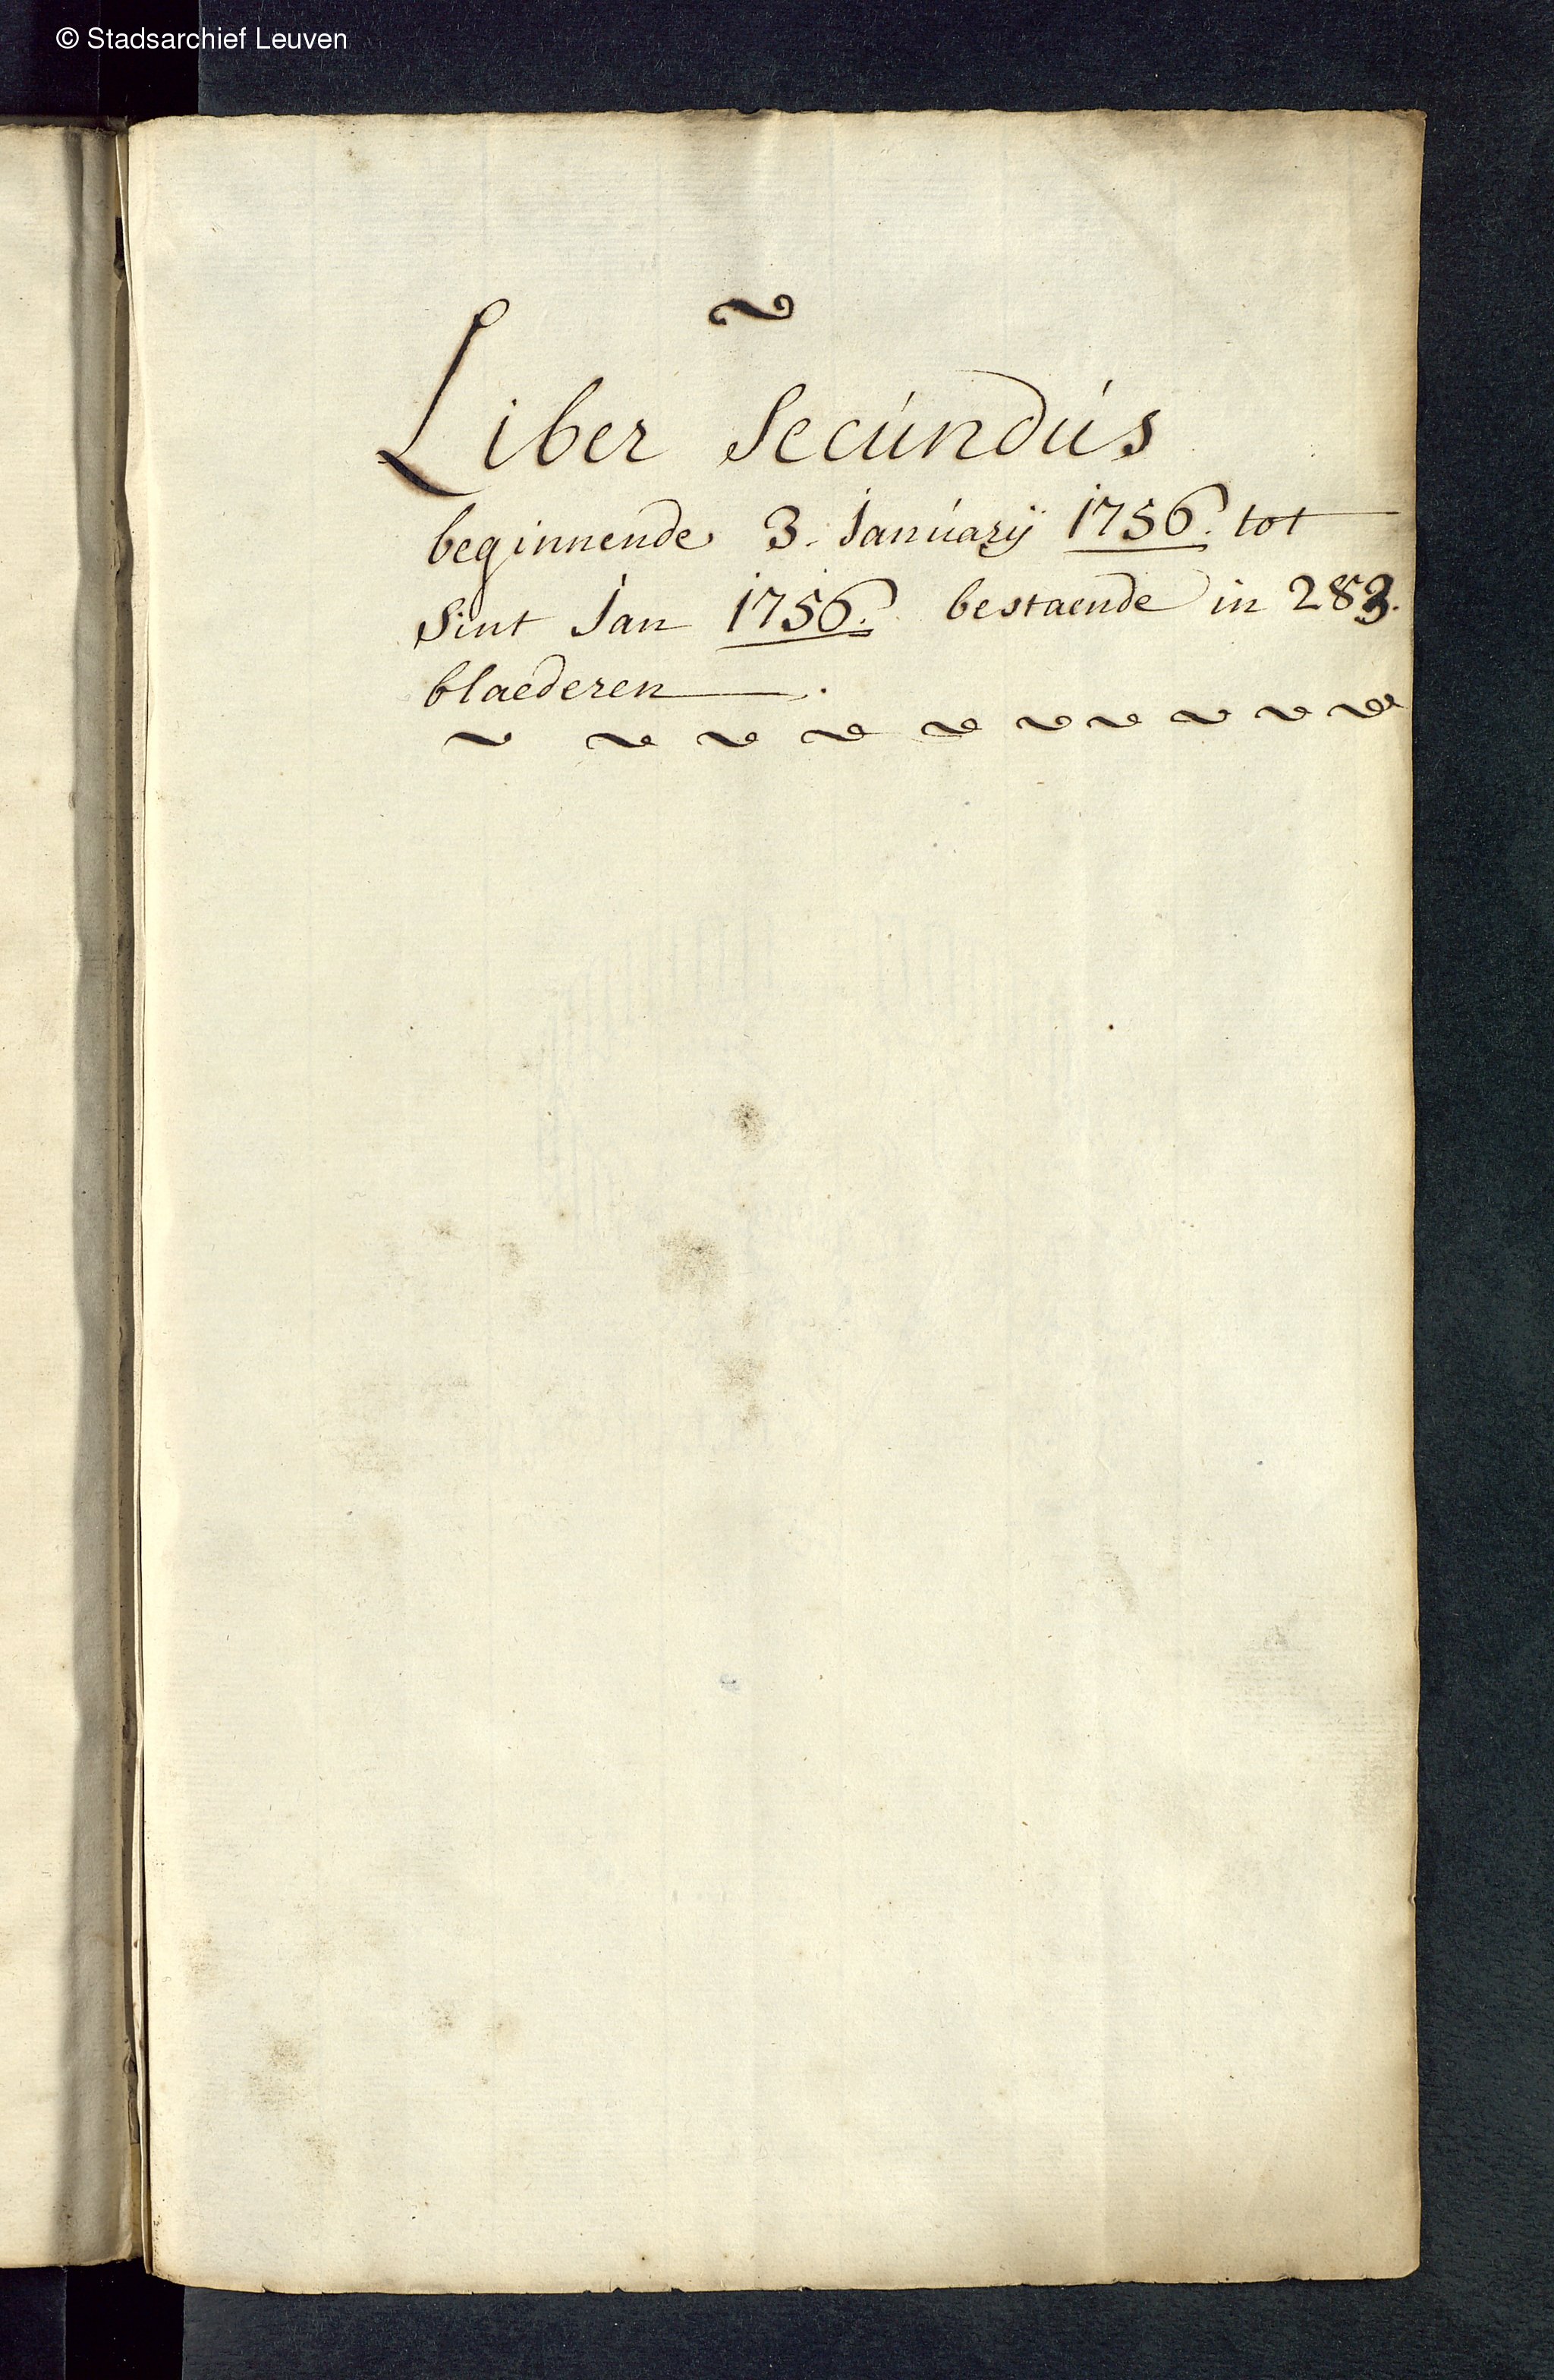 © Stadsarchief Leuven
Liber Secundus
beginnende 3. Januarÿ 1756. tot
Sint Jan 1756. bestaende in 283.
blaederen .